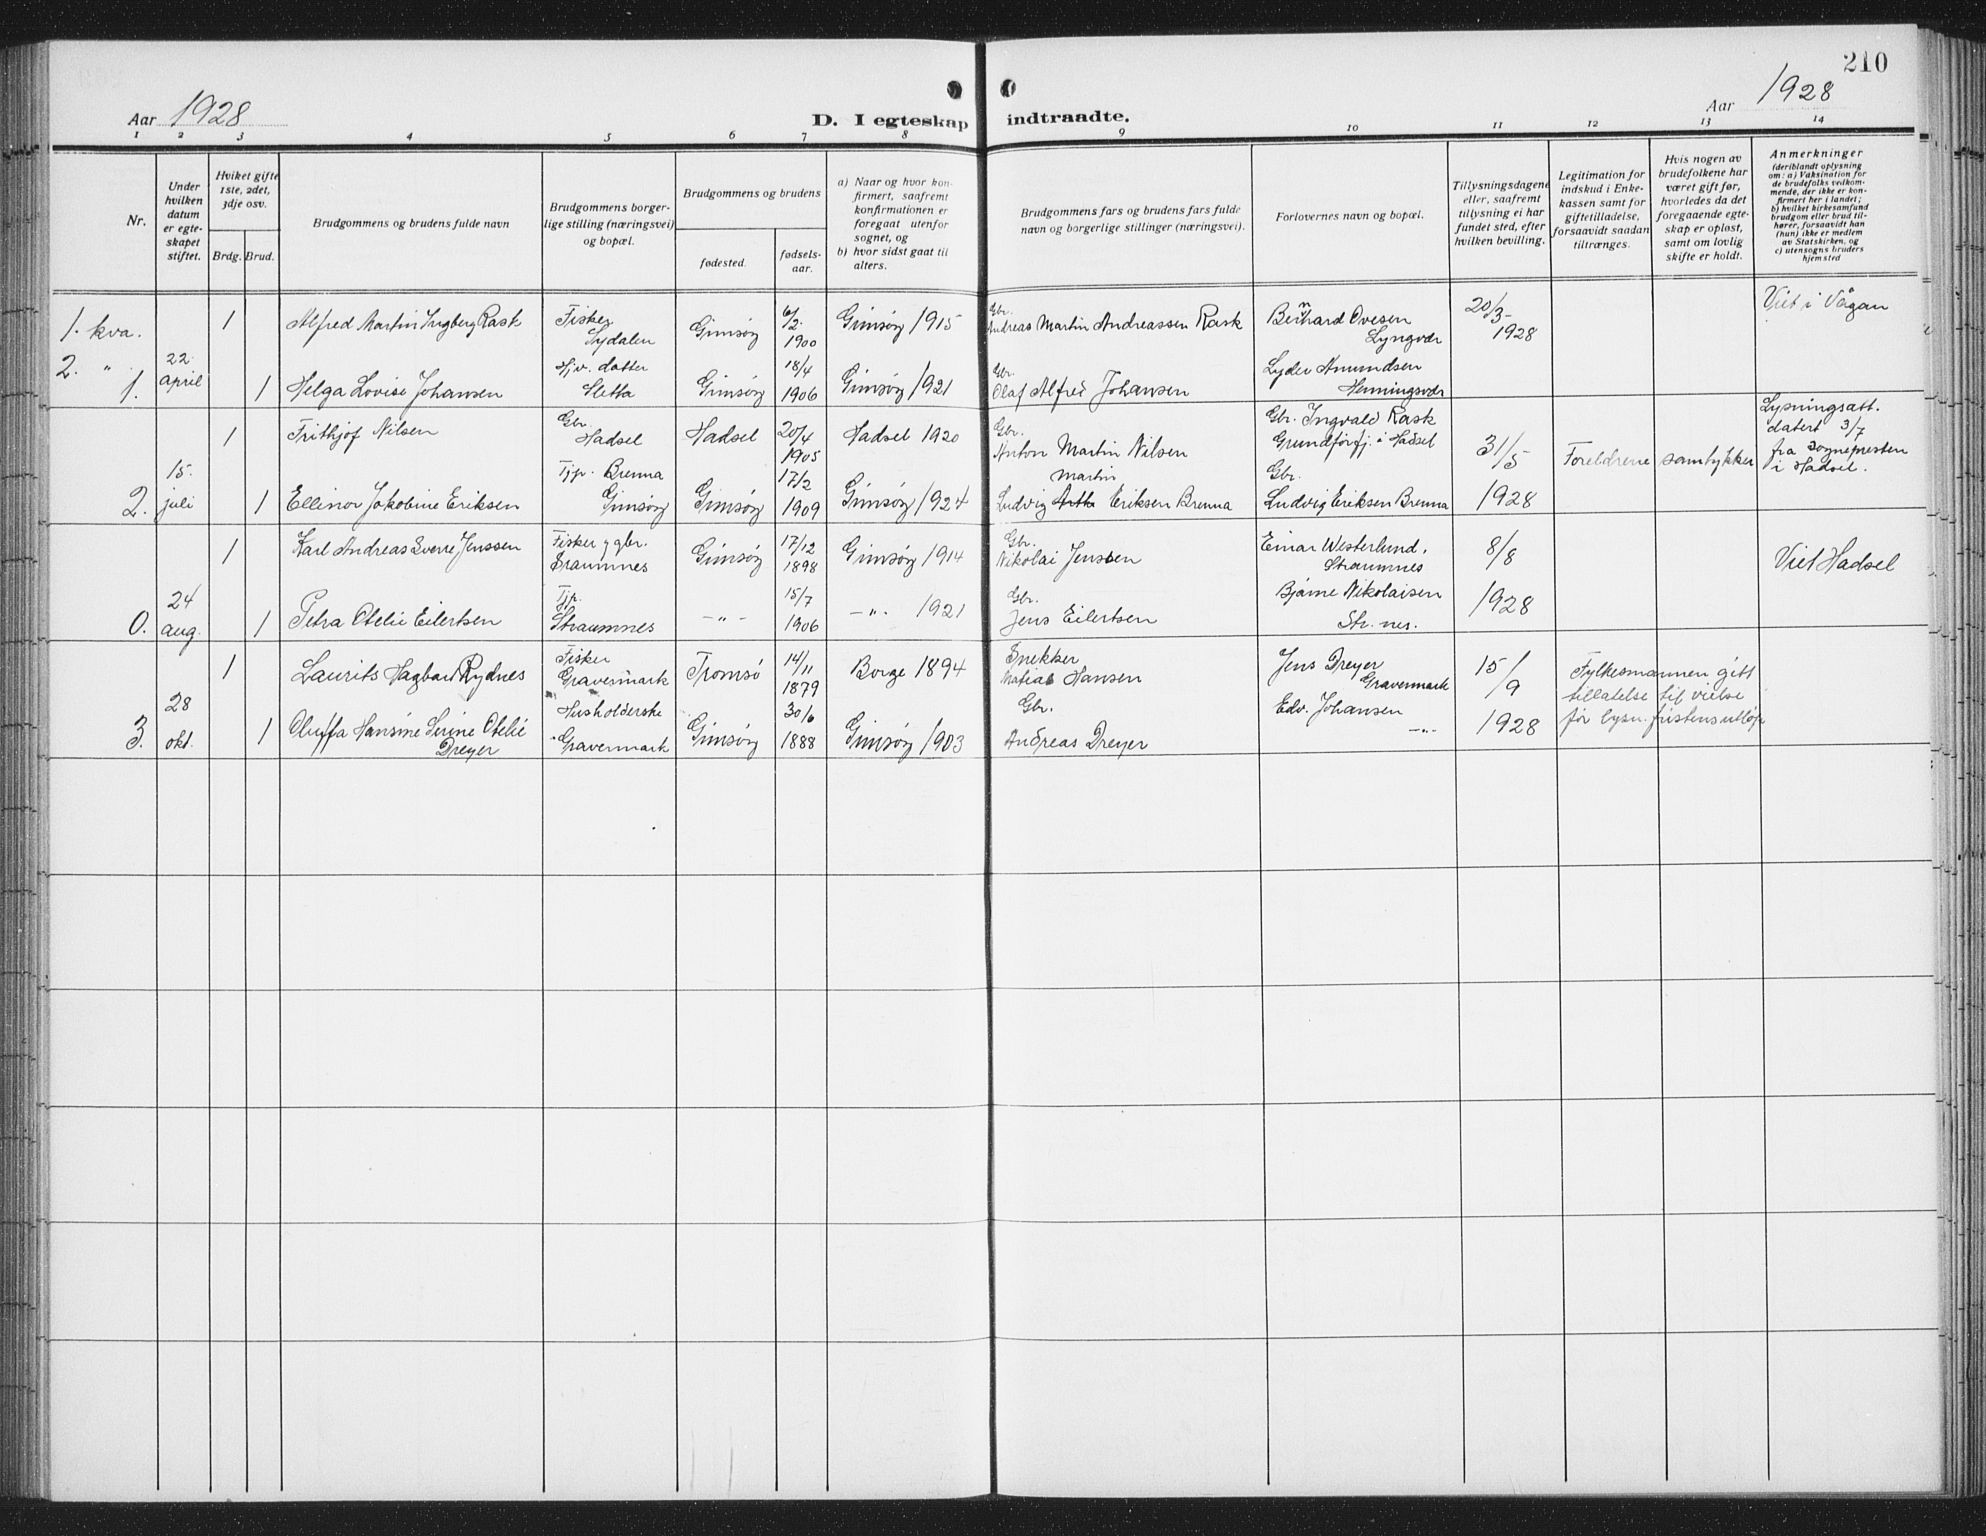 210
Aar 1928
D. I egteskap indtraadte.
Aar 1928
1 2 3 4 5 6 7 8 9 10 11 12 13 14
Nr.
Under hvilken datum er egte-skapet stiftet.
Hvilket gifte 1ste, 2det, 3dje osv.
Brdg. Brud.
Brudgommens og brudens fulde navn
Brudgommens borger-lige stilling (næringsvei) og bopæl.
Brudgommens og brudens
fødested.
fødsels-aar.
a) Naar og hvor kon-firmert, saafremt konfirmationen er foregaat utenfor sognet, og
b) hvor sidst gaat til alters.
Brudgommens fars og brudens fars fulde navn og borgerlige stillinger (næringsvei).
Forlovernes navn og bopæl.
Tillysningsdagene eller, saafremt tillysning ei har fundet sted, efter hvilken bevilling.
Legitimation for indskud i Enke-kassen samt for giftetilladelse, forsaavidt saadan tiltrænges.
Hvis nogen av brudefolkene har været gift før, hvorledes da det foregaaende egte-skap er opløst, samt om lovlig skifte er holdt.
Anmerkninger
(deriblandt oplysning om: a) Vaksination for de brudefolks vedkom-mende, der ikke er kon-firmert her i landet; b) hvilket kirkesamfund brudgom eller brud til-hører, forsaavidt han (hun) ikke er medlem av Statskirken, og c) utensogns bruders hjemsted
1. kva. 1 Alfred Martin Ingberg Rask Fisker Sydalen Gimsøy 6/2 1900 Gimsøy 1915 Gbr. Andreas Martin Andreassen Rask Bernhard Ovesen Lyngvær 20/3- 1928 Viet i Vågan
2. " 1. 22 april 1 Helga Lovise Johansen Hjv. datter Sletta Gimsøy 18/4 1906 Gimsøy 1921 Gbr. Olaf Alfred Johansen Lyder Amundsen Henningsvær
1 Frithjof Nilsen Gbr. Hadsel Hadsel 20/4 1905 Hadsel 1920 Gbr. Anton Martin Nilsen Gbr. Ingvald Rask Grundførfj. i Hadsel 31/5 Foreldrene samtykker Lysningsatt. datert 3/7 fra sognepresten i Hadsel.
2. 15. juli 1 Ellinor Jakobine Eriksen Tjp. Brenna Gimsøy Gimsøy 17/2 1909 Gimsøy 1924 Ludvig Martin Eriksen Brenna Gbr. Ludvig Eriksen Brenna 1928
1 Karl Andreas Sverre Jenssen Fisker y gbr. Straumnes Gimsøy 17/12 1898 Gimsøy 1914 Gbr. Nikolai Jenssen Einar Westerlund, Straumnes 8/8 Viet Hadsel
0. 24 aug. 1 Petra Otelie Eilertsen Tjp. Straumnes -"- 15/7 1906 -"- 1921 Gbr. Jens Eilertsen Bjarne Nikolaisen Str. nes. 1928
1 Laurits Hagbart Rydnes Fisker Gravermark Tromsø 14/11 1879 Borge 1894 Snekker Matias Hansen Jens Dreyer Gravermark 15/9 Fylkesmannen gitt tillatelse til vielse før lysn. fristens utløp
3. 28 okt. 1 Oluffa Hansine Serine Otelie Dreyer Husholderske Gravermark Gimsøy 30/6 1888 Gimsøy 1903 Gbr. Andreas Dreyer Edv. Johansen -"- 1928